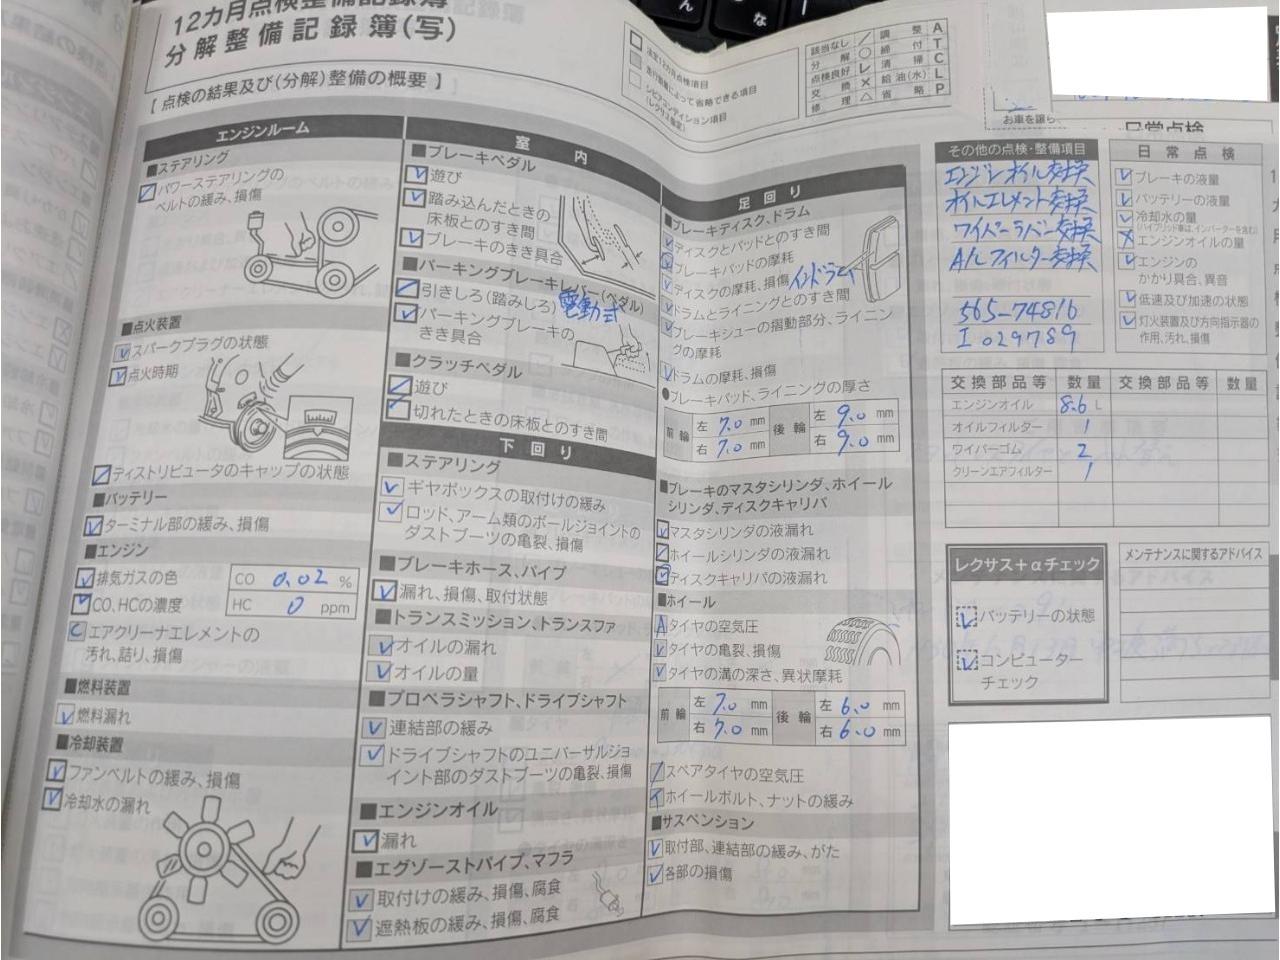 12カ月点検整備記録簿
分解整備記録簿(写)
【 点検の結果及び(分解)整備の概要 】
法定12カ月点検項目
走行距離によって省略できる項目
シビアコンディション項目
(レクサス指定)
該当なし ／ 調整 A
分解 ○ 締付 T
点検良好 レ 清掃 C
交換 × 給油(水) L
修理 △ 省略 P
お車を譲ら
日常点検
エンジンルーム
■ステアリング
パワーステアリングの
ベルトの緩み、損傷
■点火装置
スパークプラグの状態
点火時期
ディストリビュータのキャップの状態
■バッテリー
ターミナル部の緩み、損傷
■エンジン
排気ガスの色
CO、HCの濃度
CO 0.02 %
HC 0 ppm
C エアクリーナエレメントの
汚れ、詰り、損傷
■燃料装置
燃料漏れ
■冷却装置
ファンベルトの緩み、損傷
冷却水の漏れ
室内
■ブレーキペダル
遊び
踏み込んだときの
床板とのすき間
ブレーキのきき具合
■パーキングブレーキレバー(ペダル)
引きしろ(踏みしろ) 電動式
パーキングブレーキの
きき具合
■クラッチペダル
遊び
切れたときの床板とのすき間
下回り
■ステアリング
ギヤボックスの取付けの緩み
ロッド、アーム類のボールジョイントの
ダストブーツの亀裂、損傷
■ブレーキホース、パイプ
漏れ、損傷、取付状態
■トランスミッション、トランスファ
オイルの漏れ
オイルの量
■プロペラシャフト、ドライブシャフト
連結部の緩み
ドライブシャフトのユニバーサルジョ
イント部のダストブーツの亀裂、損傷
■エンジンオイル
漏れ
■エグゾーストパイプ、マフラ
取付けの緩み、損傷、腐食
遮熱板の緩み、損傷、腐食
足回り
■ブレーキディスク、ドラム
ディスクとパッドとのすき間
ブレーキパッドの摩耗
ディスクの摩耗、損傷 インドラム
ドラムとライニングとのすき間
ブレーキシューの摺動部分、ライニン
グの摩耗
ドラムの摩耗、損傷
●ブレーキパッド、ライニングの厚さ
前輪 左 7.0 mm 後輪 左 9.0 mm
右 7.0 mm 右 9.0 mm
■ブレーキのマスタシリンダ、ホイール
シリンダ、ディスクキャリパ
マスタシリンダの液漏れ
ホイールシリンダの液漏れ
ディスクキャリパの液漏れ
■ホイール
A タイヤの空気圧
タイヤの亀裂、損傷
タイヤの溝の深さ、異状摩耗
前輪 左 7.0 mm 後輪 左 6.0 mm
右 7.0 mm 右 6.0 mm
スペアタイヤの空気圧
T ホイールボルト、ナットの緩み
■サスペンション
取付部、連結部の緩み、がた
各部の損傷
その他の点検・整備項目
エンジンオイル交換
オイルエレメント交換
ワイパーラバー交換
A/Cフィルター交換
565-74816
I 029789
日常点検
ブレーキの液量
バッテリーの液量
冷却水の量
(ハイブリッド車は、インバーターを含む)
エンジンオイルの量
エンジンの
かかり具合、異音
低速及び加速の状態
灯火装置及び方向指示器の
作用、汚れ、損傷
交換部品等 数量 交換部品等 数量
エンジンオイル 8.6 L
オイルフィルター 1
ワイパーゴム 2
クリーンエアフィルター 1
レクサス+αチェック
バッテリーの状態
コンピューター
チェック
メンテナンスに関するアドバイス